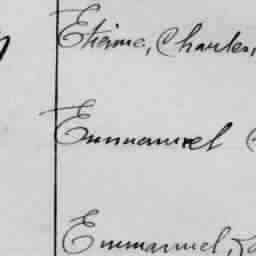 Etienne, Charles,
Emmanuel
Emmanuel,